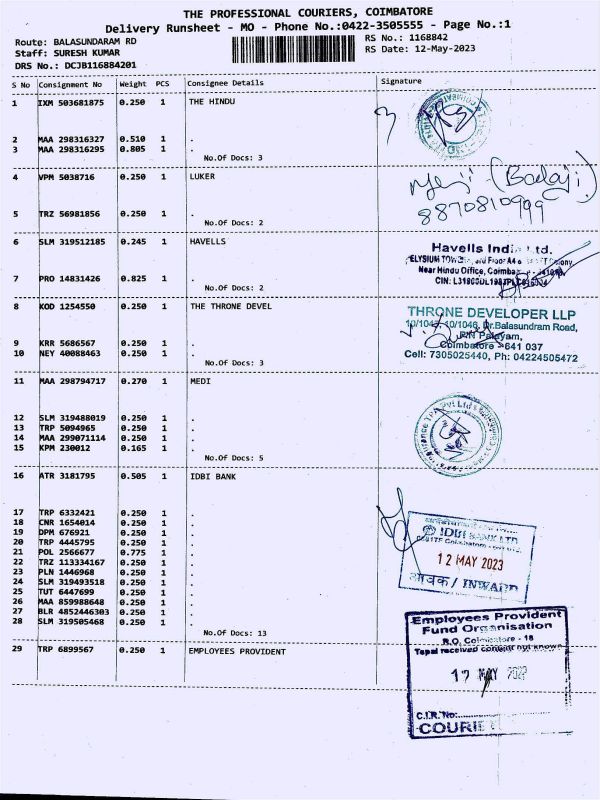 THE PROFESSIONAL COURIERS, COIMBATORE
Delivery Runsheet - MO - Phone No.:0422-3505555 - Page No.:1
Route: BALASUNDARAM RD
RS No.: 1168842
Staff: SURESH KUMAR
RS Date: 12-May-2023
DRS No.: DCJB116884201
S No Consignment No Weight PCS Consignee Details Signature
1 IXM 503681875 0.250 1 THE HINDU
2 MAA 298316327 0.510 1 .
3 MAA 298316295 0.805 1 .
No.Of Docs: 3
4 VPM 5038716 0.250 1 LUKER
(Badaji)
8870810999
5 TRZ 56981856 0.250 1 .
No.Of Docs: 2
6 SLM 319512185 0.245 1 HAVELLS
Havells India Ltd.
Near Hindu Office,
7 PRO 14831426 0.825 1 .
No.Of Docs: 2
8 KOD 1254550 0.250 1 THE THRONE DEVEL
THRONE DEVELOPER LLP
10/1045, 10/1046, Dr.Balasundram Road,
P.N Palayam,
Coimbatore - 641 037
Cell: 7305025440, Ph: 04224505472
9 KRR 5686567 0.250 1 .
10 NEY 40088463 0.250 1 .
No.Of Docs: 3
11 MAA 298794717 0.270 1 MEDI
12 SLM 319488019 0.250 1 .
13 TRP 5094965 0.250 1 .
14 MAA 299071114 0.250 1 .
15 KPM 230012 0.165 1 .
No.Of Docs: 5
16 ATR 3181795 0.505 1 IDBI BANK
17 TRP 6332421 0.250 1 .
18 CNR 1654014 0.250 1 .
19 DPM 676921 0.250 1 .
20 TRP 4445795 0.250 1 .
21 POL 2566677 0.775 1 .
22 TRZ 113334167 0.250 1 .
23 PLN 1446968 0.250 1 .
24 SLM 319493518 0.250 1 .
25 TUT 6447699 0.250 1 .
26 MAA 859988648 0.250 1 .
27 BLR 4852446303 0.250 1 .
28 SLM 319505468 0.250 1 .
No.Of Docs: 13
IDBI BANK LTD
12 MAY 2023
आवक / INWARD
29 TRP 6899567 0.250 1 EMPLOYEES PROVIDENT
Employees Provident
Fund Organisation
R.O. Coimbatore - 18
Tapal received content not known
MAY
C.I.R. No:
COURIE